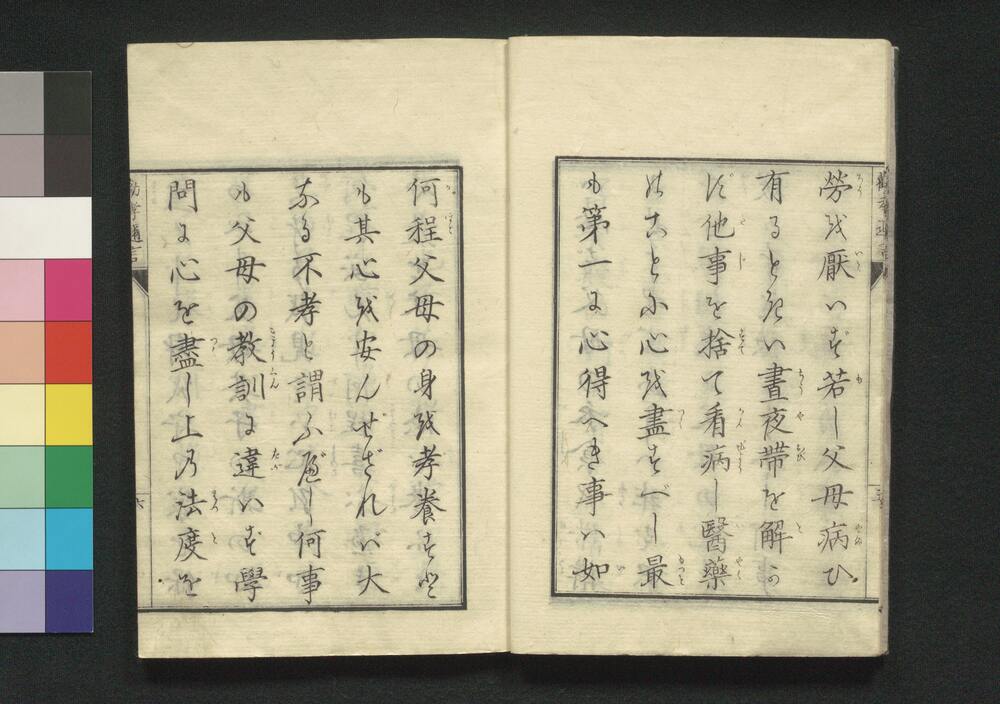 勞を厭はず若し父母病ひ
有るときは晝夜帶を解か
ず他事を捨て看病し醫藥
のことに心を盡すべし最
も第一に心得べき事は如
何程父母の身を孝養すと
も其心を安んぜざれば大
なる不孝と謂ふべし何事
も父母の教訓に違はず學
問に心を盡し上の法度を